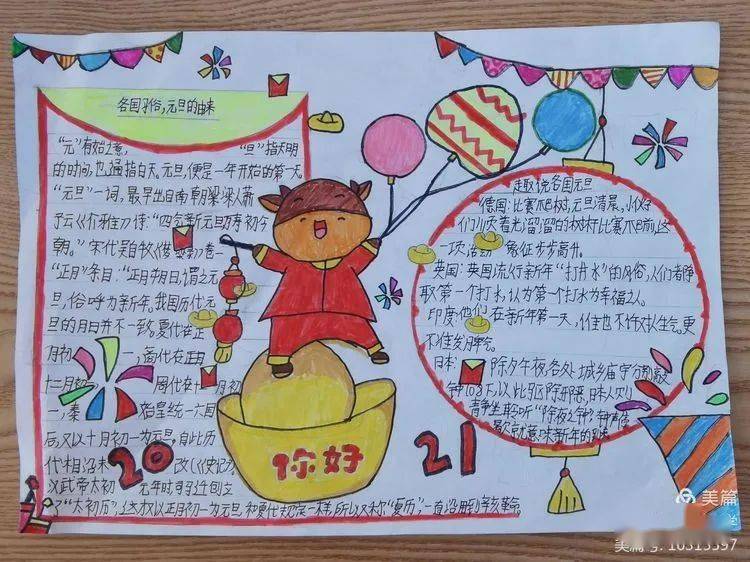 各国习俗,元旦的由来
“元”有始之意, “旦”指天明
的时间,也通指白天。元旦,便是一年开始的第一天。
“元旦”一词,最早出自南朝梁人萧
子云《介雅》诗:“四气新元旦,寿初今
朝。”宋代吴自牧《梦粱录》卷一
“正月”条目:“正月朔日,谓之元
旦,俗呼为新年。我国历代元
旦的月日并不一致。夏代在正
月初一,商代在
十二月初一 周代在十一月初
一,秦始皇统一六国
后,又以十月初一为元旦,自此历
代相沿未改《史记》
以武帝太初元年时司 创立
了“太初历”,这才以正月初一为元旦,和夏代规定一样,所以又称“夏历”,一直沿用到辛亥革命。
趣说各国元旦
德国:比赛爬树,元旦清晨,小伙子
们顺着光溜溜的树杆比赛爬前,这
一项活动 象征步步高升。
英国:英国流行新年“打井水”的风俗,人们者争
取第一个打水,认为第一个打水为幸福之人。
印度:他们在新年第一天,谁也不许对人生气。更
不准发脾气。
日本: 除夕午夜各处城乡庙宇分别敲
钟108下,以此驱除邪恶,日本人
静坐聆听“除夜之钟”,钟声停
歇就意味新年的到来
你好
20 21
美篇
美篇号: 10313597